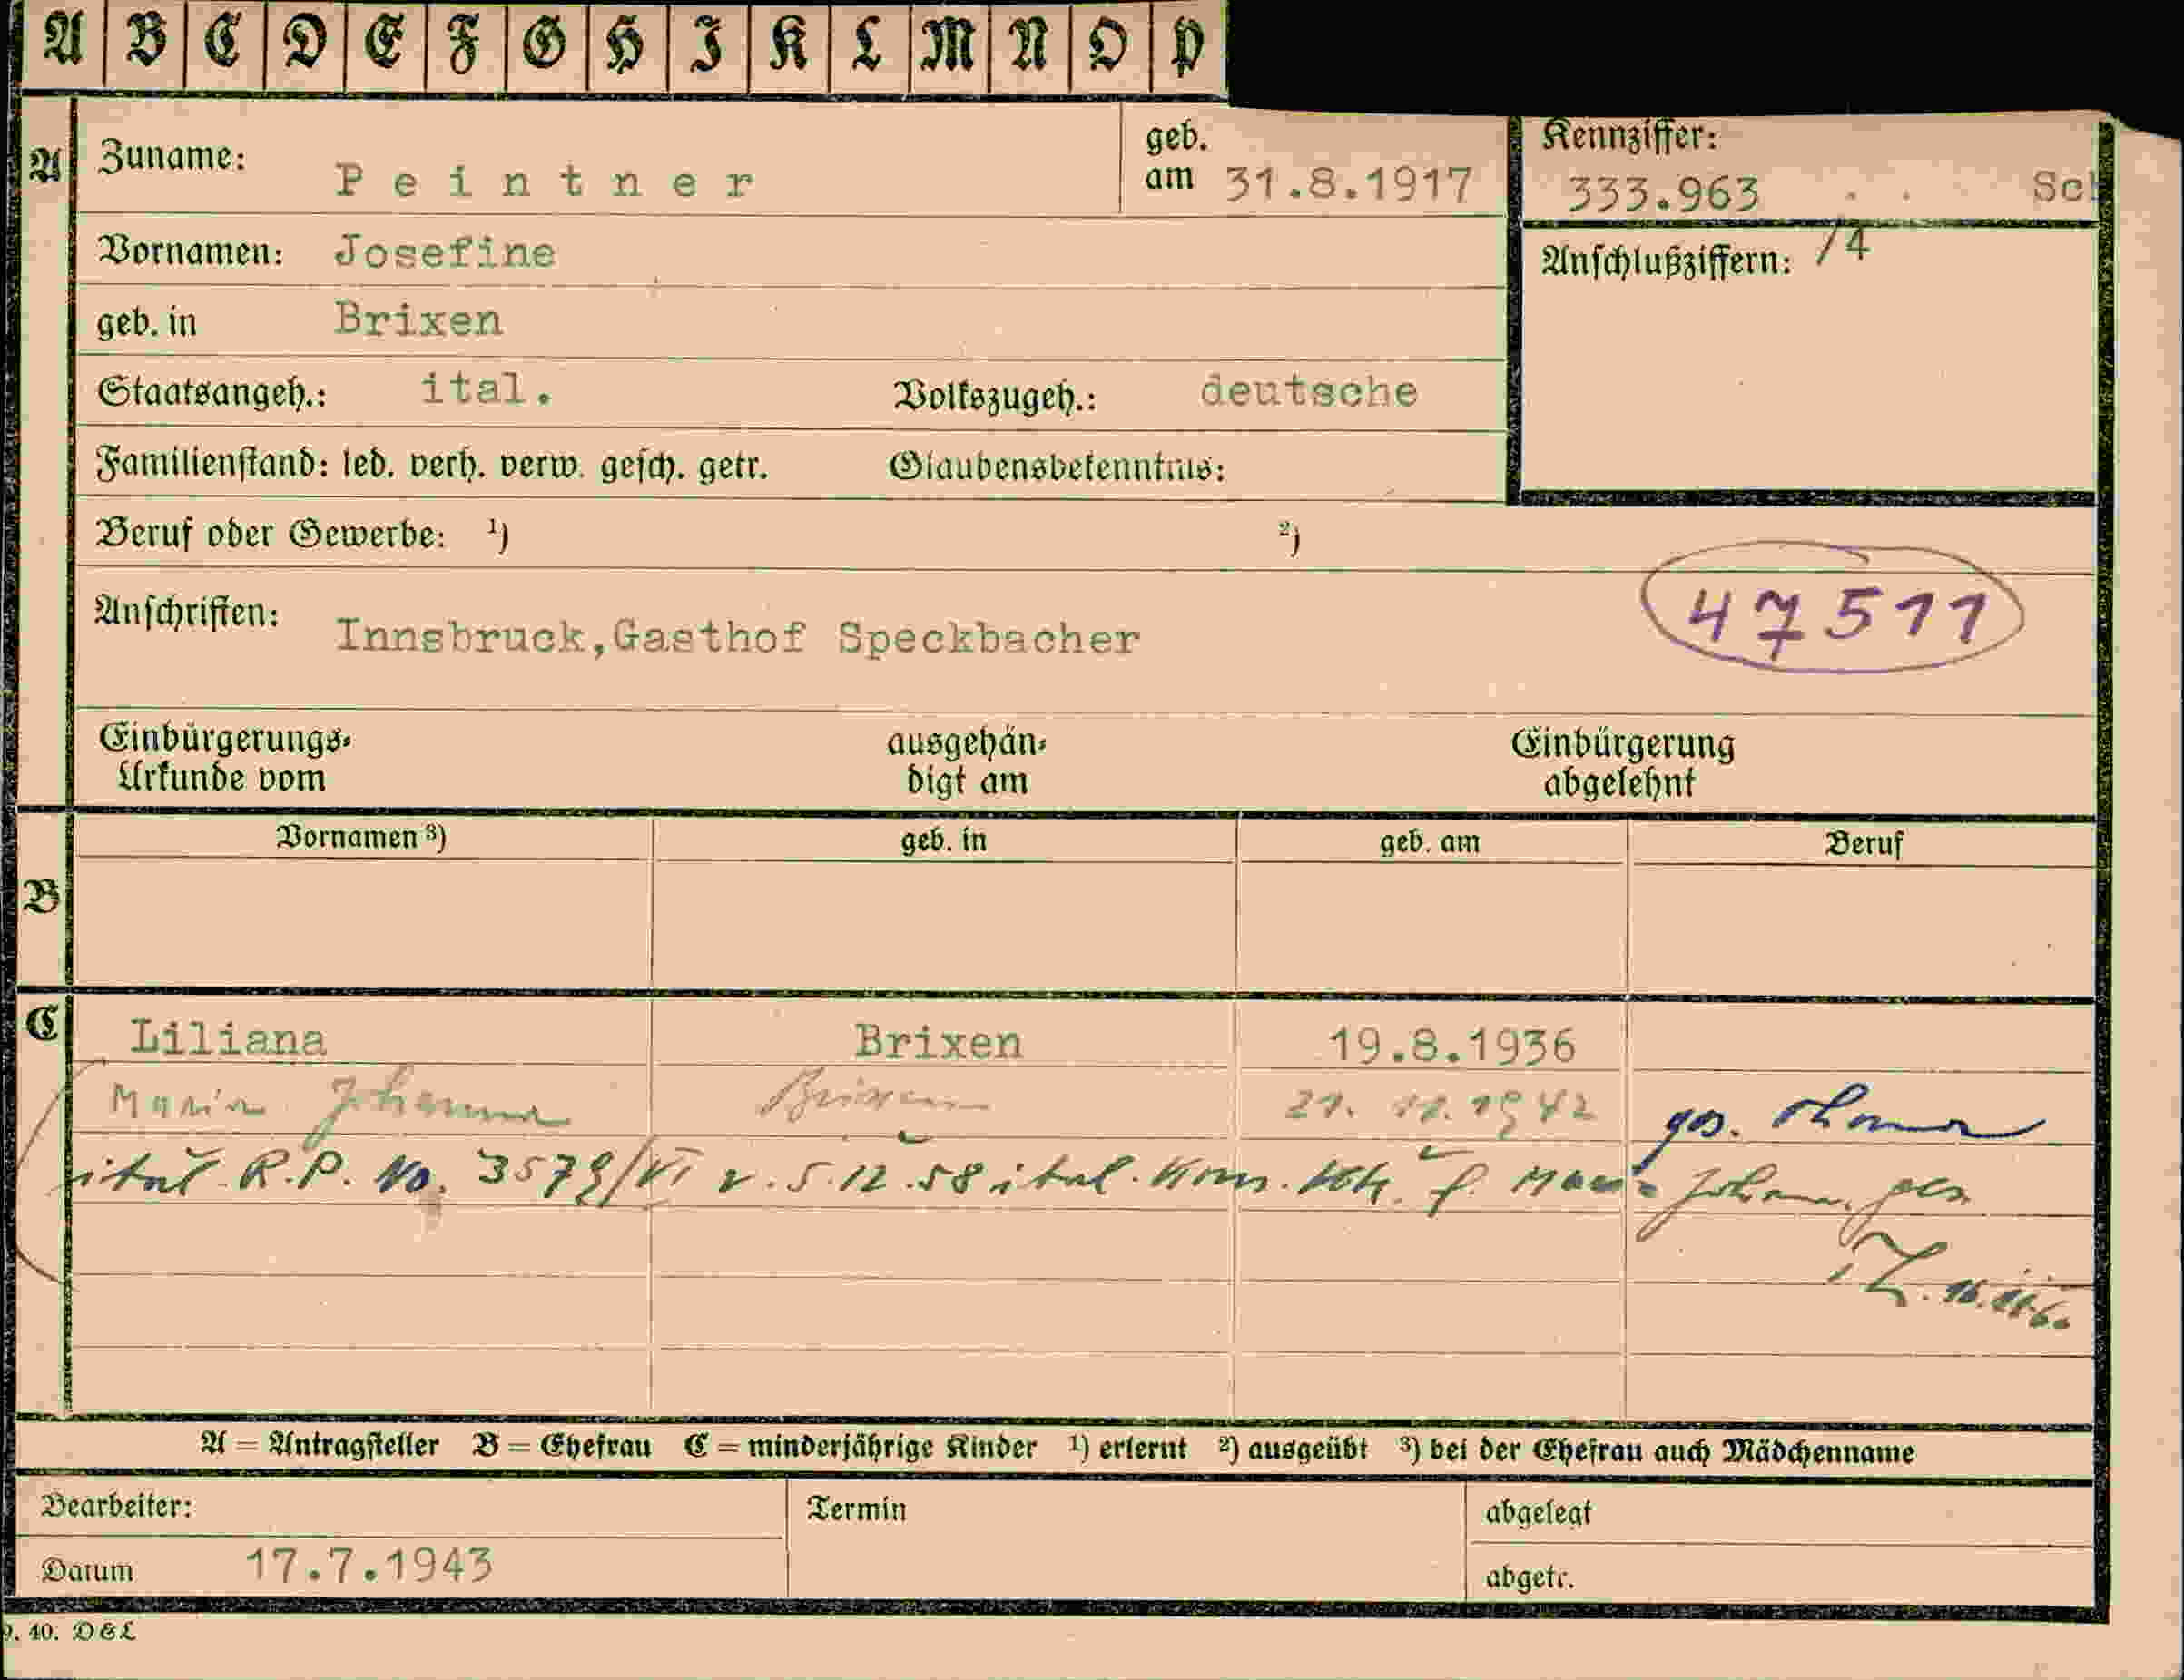 A B C D E F G H I K L M N O P
A
Zuname: Peintner
geb. am 31.8.1917
Kennziffer: 333.963 . . Sch
Vornamen: Josefine
Anschlußziffern: /4
geb. in Brixen
Staatsangeh.: ital. Volkszugeh.: deutsche
Familienstand: led. verh. verw. gesch. getr. Glaubensbekenntnis:
Beruf oder Gewerbe: ¹) ²)
47511
Anschriften: Innsbruck,Gasthof Speckbacher
Einbürgerungs-Urkunde vom
ausgehändigt am
Einbürgerung abgelehnt
B
Vornamen ³) geb. in geb. am Beruf
C
Liliana Brixen 19.8.1936
Maria Johanna Brixen 21. 11. 1942
ital. R.P. No. 3579/VI v. 5.12.58 ital. Kons. f. Maria Johann.
A = Antragsteller B = Ehefrau C = minderjährige Kinder ¹) erlernt ²) ausgeübt ³) bei der Ehefrau auch Mädchenname
Bearbeiter:
Termin
abgelegt
Datum 17.7.1943
abgetr.
9. 40. D & L